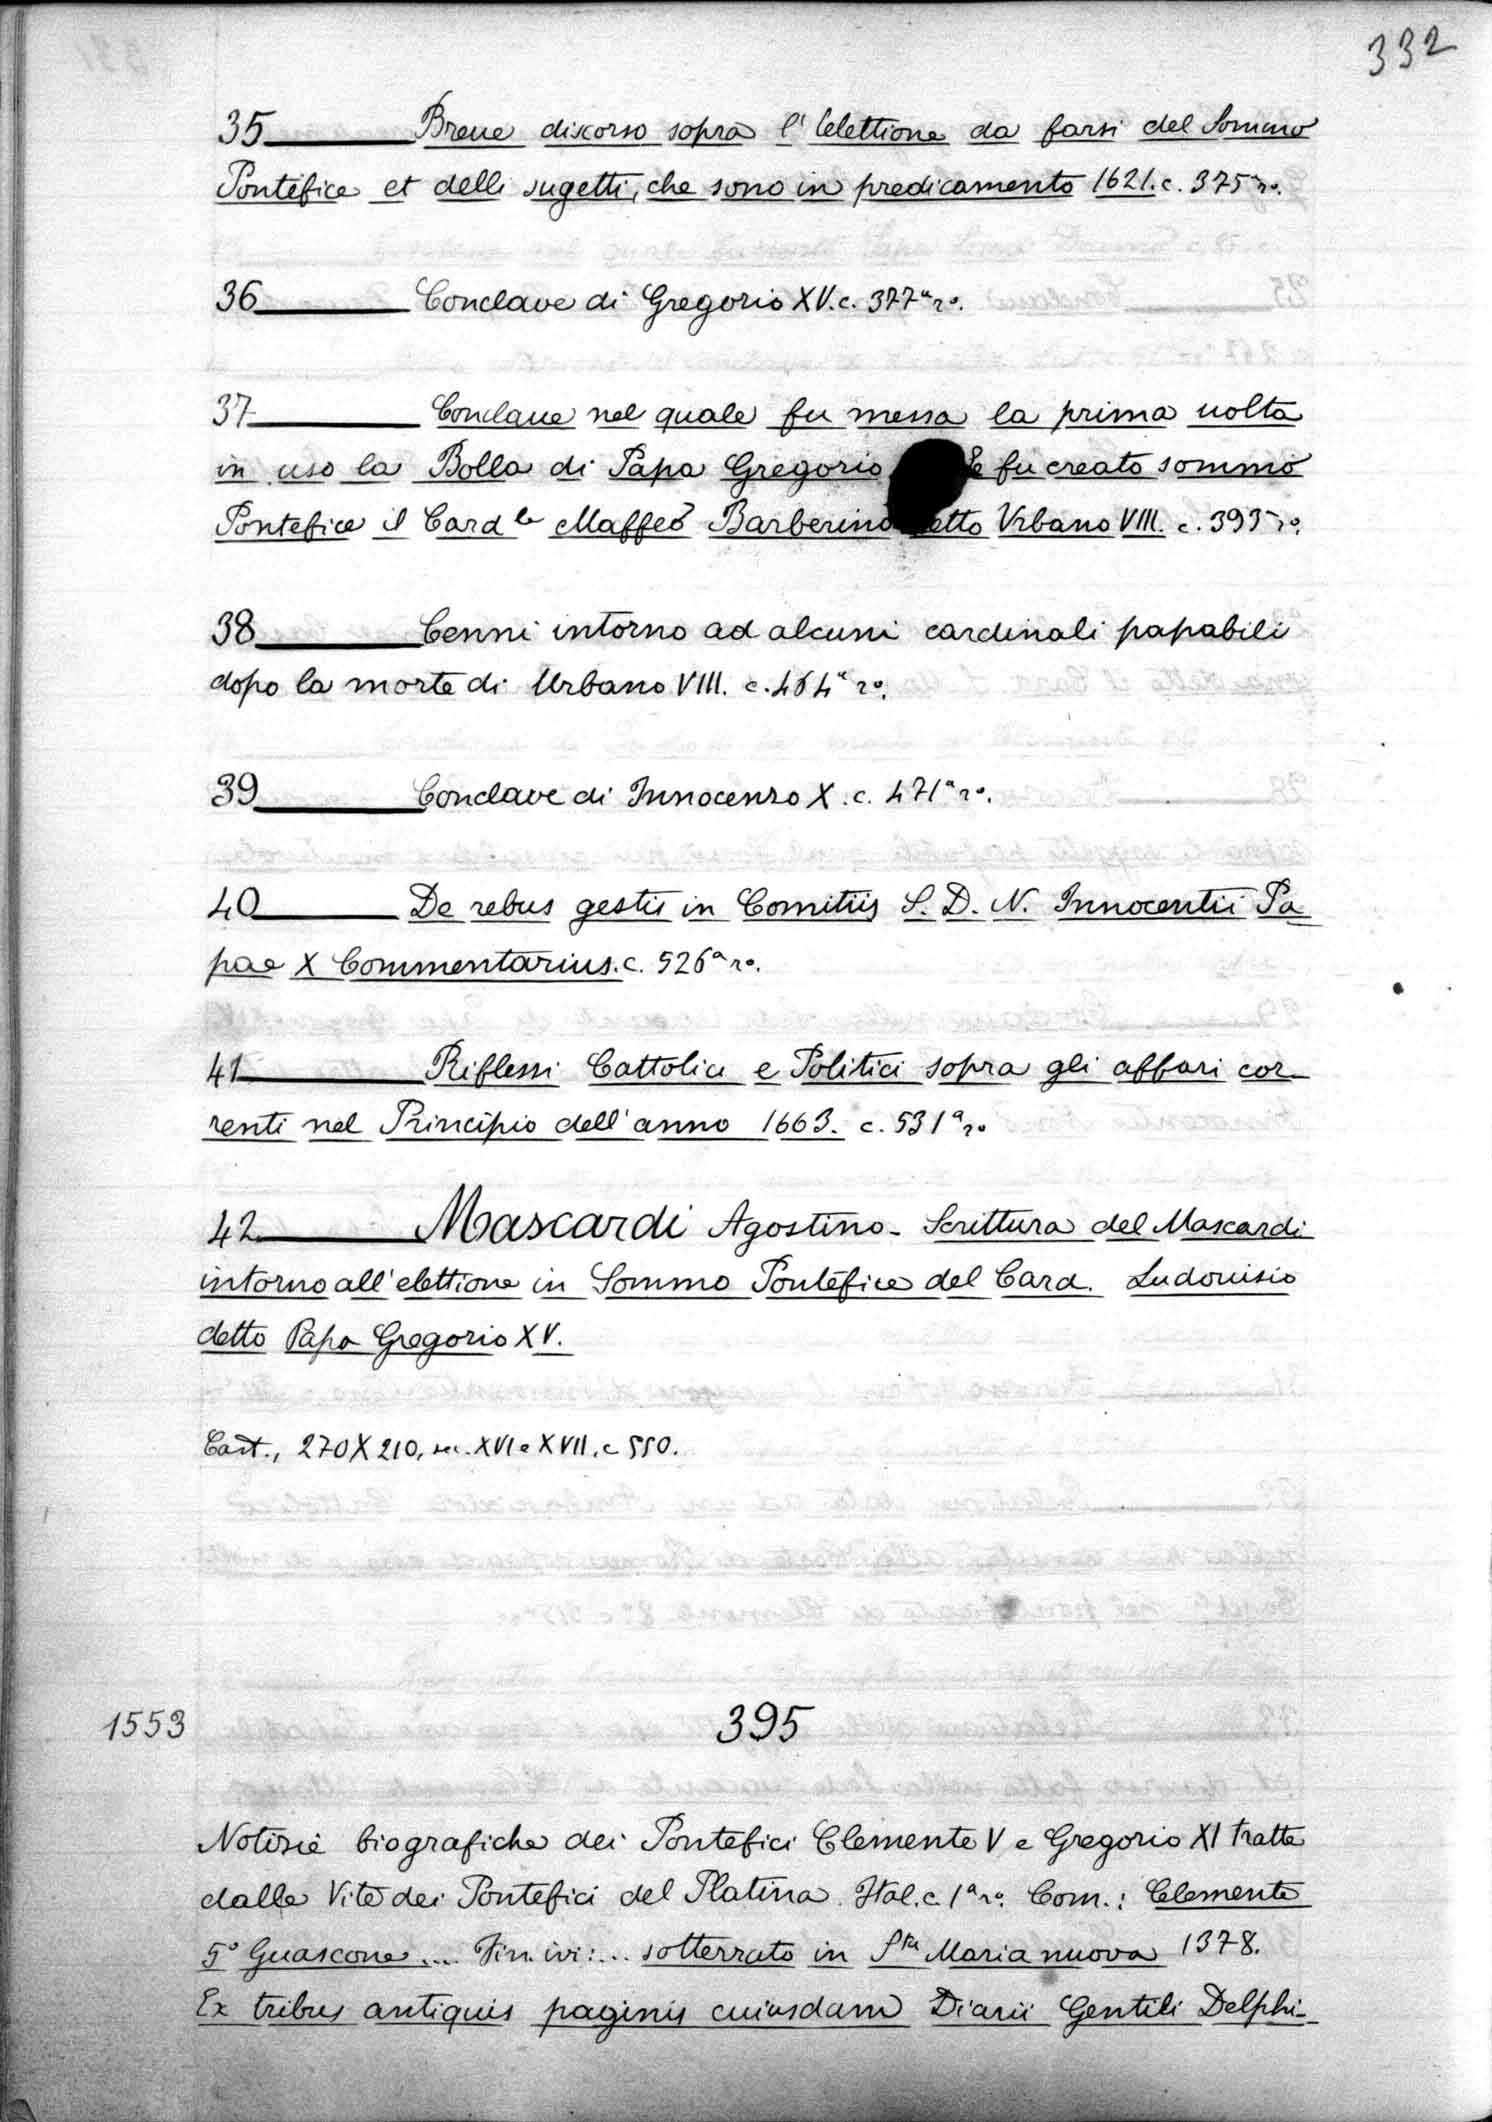 332
35 Breue discorso sopra l'Elettione da farsi del Sommo
Pontefice et delli sugetti, che sono in predicamento 1621. c. 375ª rº.
36 Conclave di Gregorio XV. c. 377ª rº.
37 Conclaue nel quale fu messa la prima uolta
in uso la Bolla di Papa Gregorio E fu creato sommo
Pontefice il Card.le Maffeo Barberino etto Vrbano VIII. c. 393ª rº.
38 Cenni intorno ad alcuni cardinali papabili
dopo la morte di Urbano VIII. c. 464ª rº.
39 Conclave di Innocenzo X. c. 471ª rº.
40 De rebus gestis in Comitiis S. D. N. Innocentii Pa-
pae X Commentarius. c. 526ª rº.
41 Riflessi Cattolici e Politici sopra gli affari cor-
renti nel Principio dell'anno 1663. c. 531ª rº
42 Mascardi Agostino - Scrittura del Mascardi
intorno all'elettione in Sommo Pontefice del Card. Ludouisio
detto Papa Gregorio XV.
Cart., 270 X 210, sec. XVI e XVII, c 550.
1553 395
Notizie biografiche dei Pontefici Clemente V e Gregorio XI tratte
dalle Vite dei Pontefici del Platina. Ital. c. 1ª rº. Com.: Clemente
5º Guascone ... Fin. ivi: ... sotterrato in Sta Maria nuova 1378.
Ex tribus antiquis paginis cuiusdam Diarii Gentili Delphi-